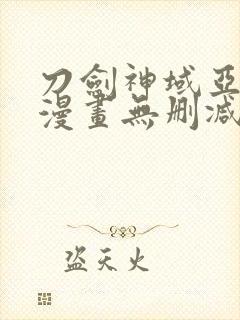 刀劍神域亞
漫畫無刪減
盜天火